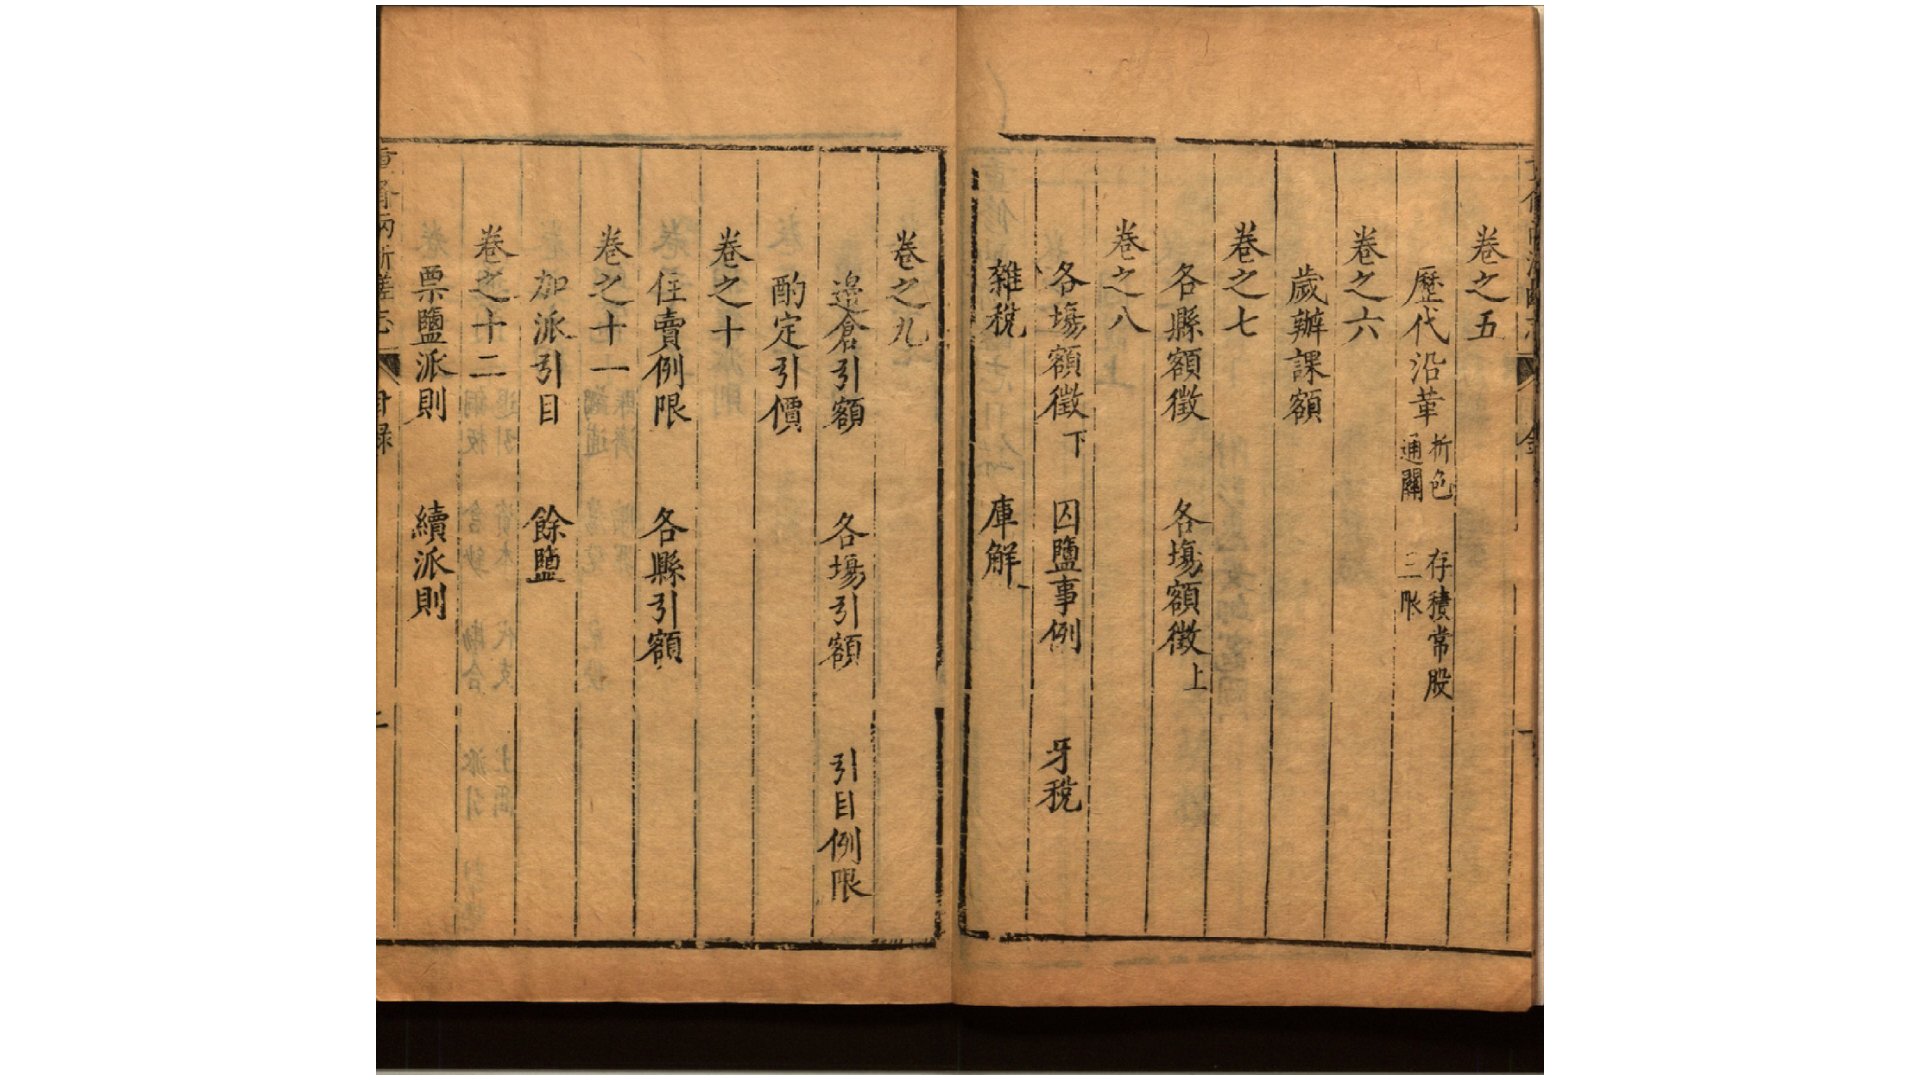 卷之五
歷代沿革 折色通關 存積常股三限
卷之六
歲辦課額
卷之七
各縣額徵 各塲額徵上
卷之八
各塲額徵下 囚鹽事例 牙稅
雜稅 庫解
卷之九
邊倉引額 各塲引額 引目例限
酌定引價
卷之十
住賣例限 各縣引額
卷之十一
加派引目 餘鹽
卷之十二
票鹽派則 續派則
目錄